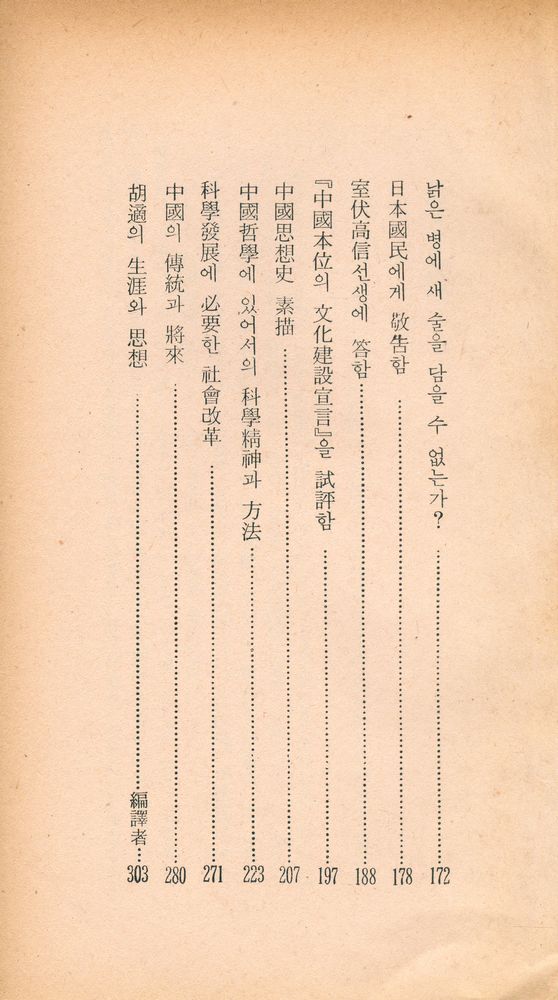 낡은 병에 새 술을 담을 수 없는가? 172
日本國民에게 敬告함 178
室伏高信선생에 答함 188
『中國本位의 文化建設宣言』을 試評함 197
中國思想史 素描 207
中國哲學에 있어서의 科學精神과 方法 223
科學發展에 必要한 社會改革 271
中國의 傳統과 將來 280
胡適의 生涯와 思想 編譯者 303